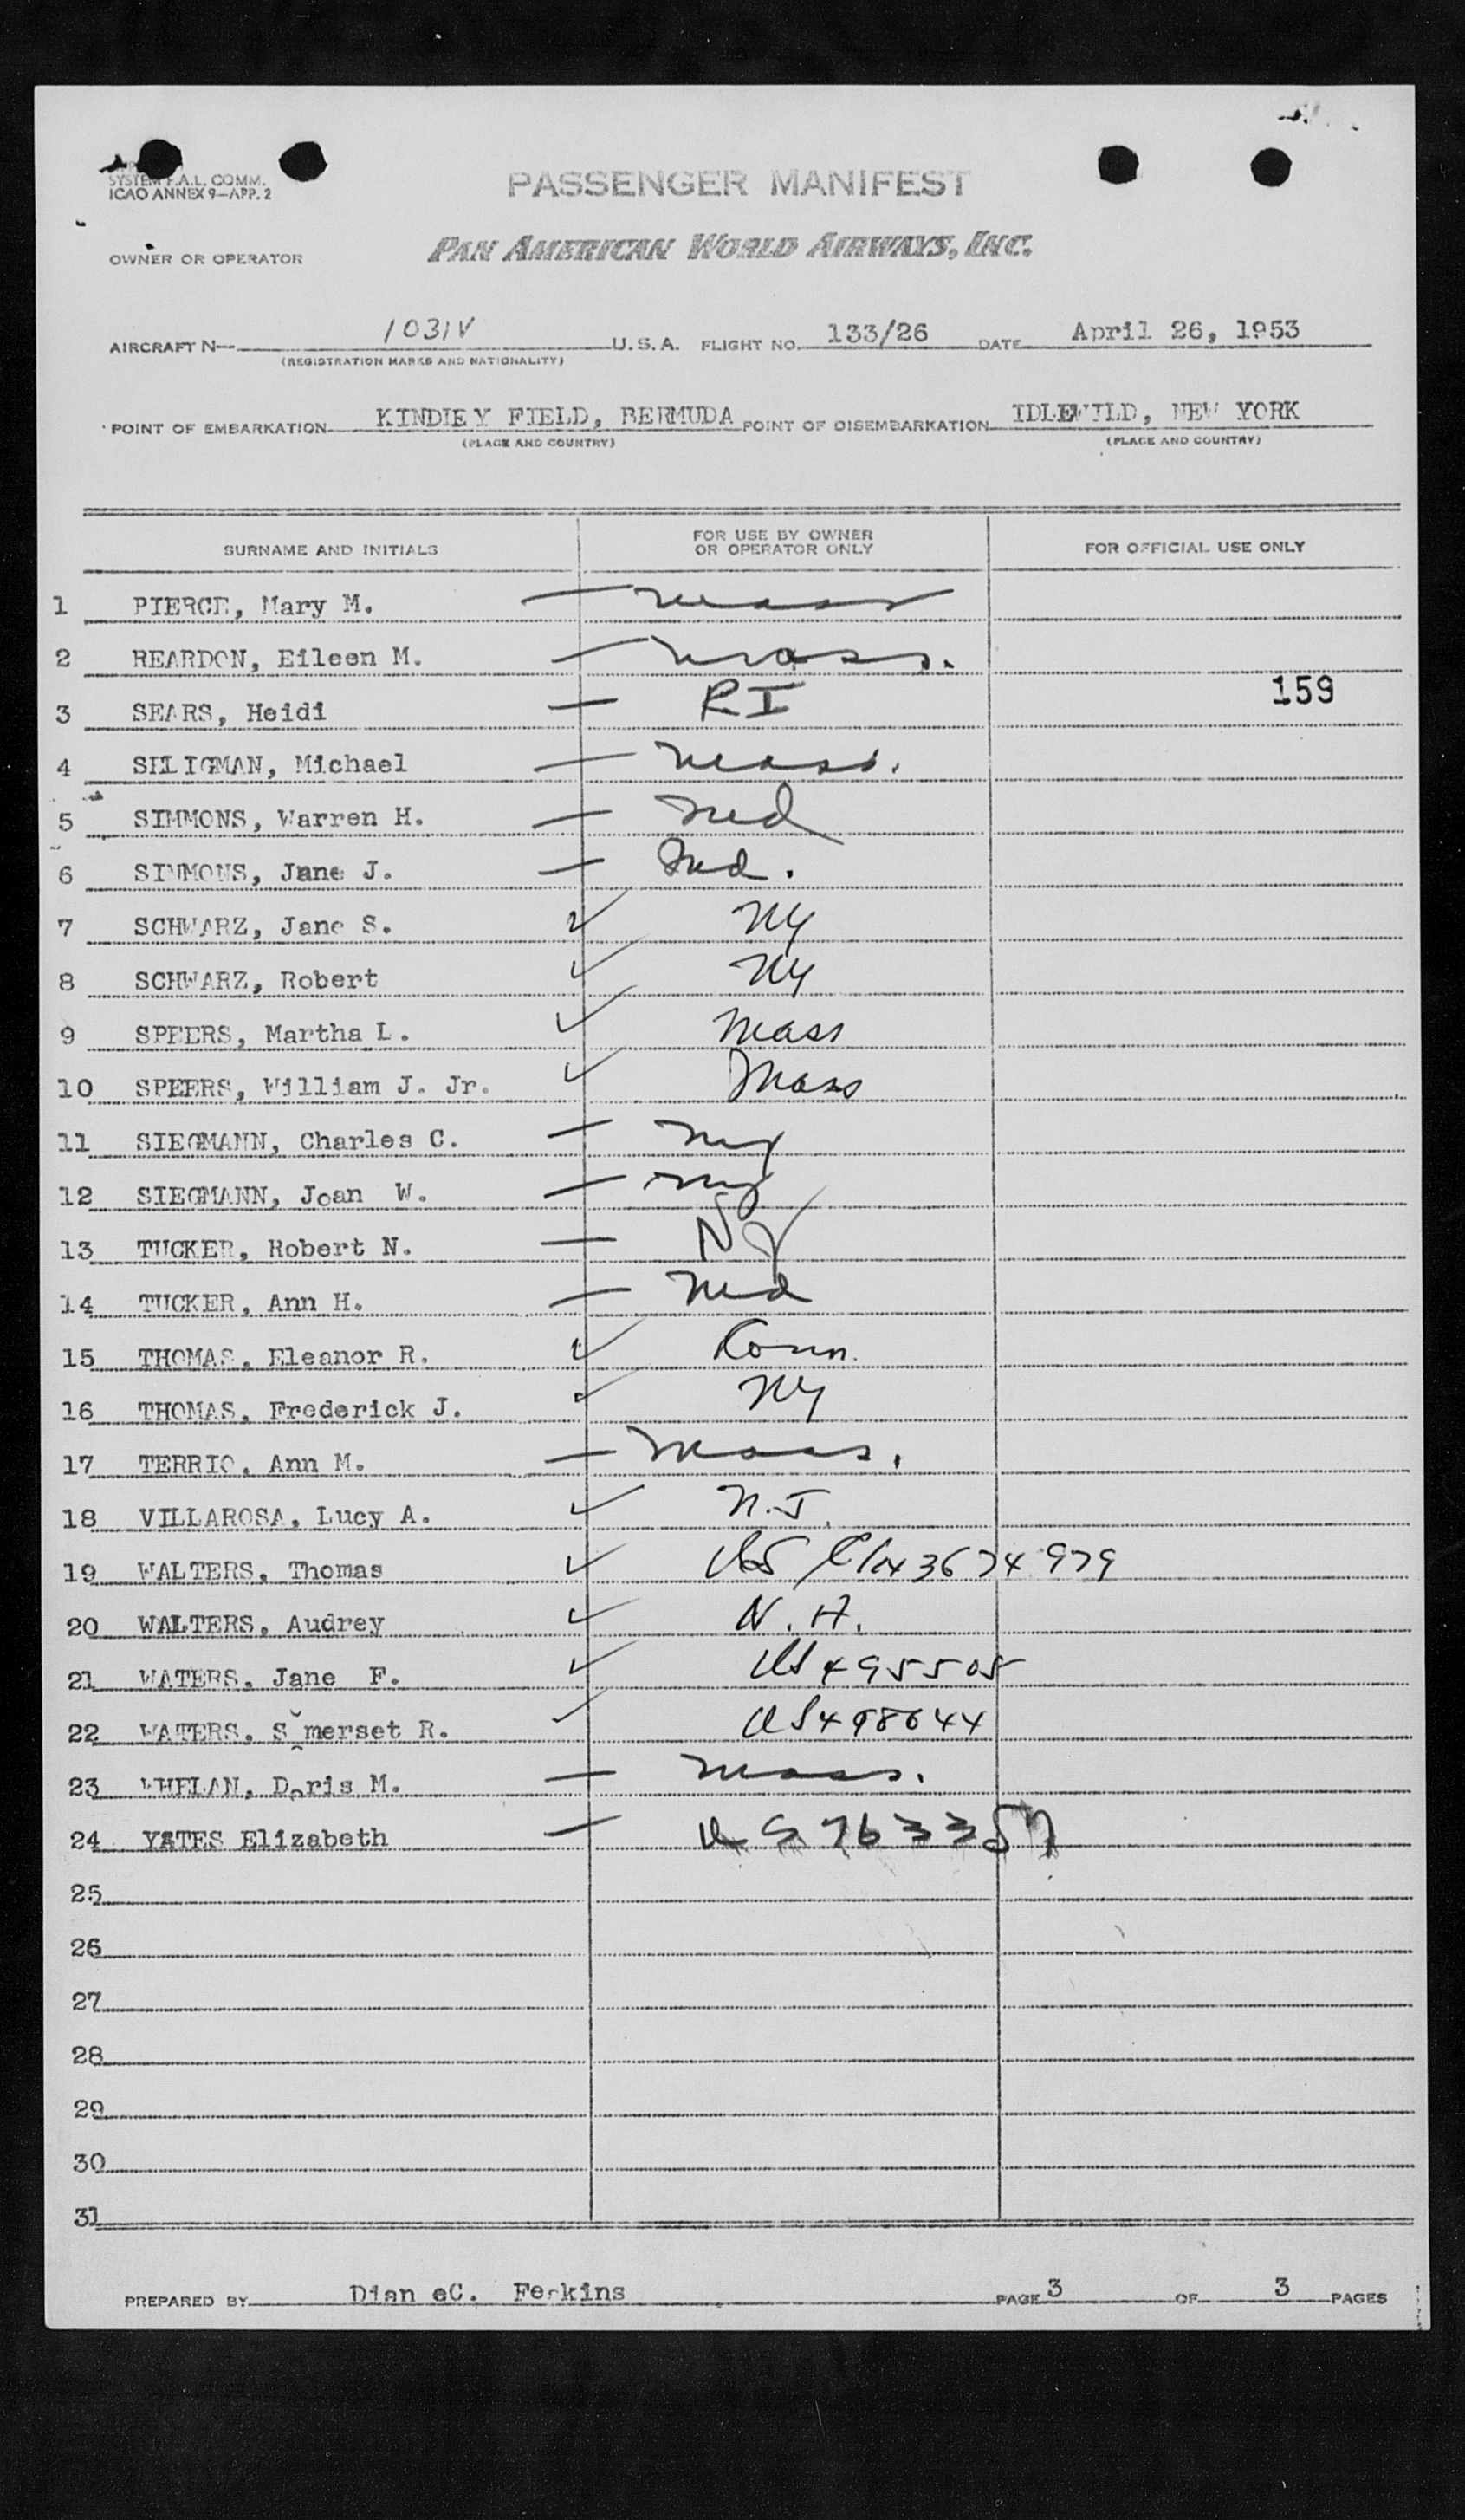 SYSTEM F.A.L. COMM.
ICAO ANNEX 9—APP. 2
PASSENGER MANIFEST
OWNER OR OPERATOR PAN AMERICAN WORLD AIRWAYS, INC.
AIRCRAFT N— 1031V U.S.A. FLIGHT NO. 133/26 DATE April 26, 1953
(REGISTRATION MARKS AND NATIONALITY)
POINT OF EMBARKATION KINDLEY FIELD, BERMUDA POINT OF DISEMBARKATION IDLEWILD, NEW YORK
(PLACE AND COUNTRY) (PLACE AND COUNTRY)
SURNAME AND INITIALS FOR USE BY OWNER OR OPERATOR ONLY FOR OFFICIAL USE ONLY
1 PIERCE, Mary M. — Mass
2 REARDON, Eileen M. — Mass.
159
3 SEARS, Heidi — RI
4 SELIGMAN, Michael — Mass.
5 SIMMONS, Warren H. — Md
6 SIMMONS, Jane J. — Md.
7 SCHWARZ, Jane S. ✓ NY
8 SCHWARZ, Robert ✓ NY
9 SPEERS, Martha L. ✓ Mass
10 SPEERS, William J. Jr. ✓ Mass
11 SIEGMANN, Charles C. — NY
12 SIEGMANN, Joan W. — NY
13 TUCKER, Robert N. — NY
14 TUCKER, Ann H. — Md
15 THOMAS, Eleanor R. ✓ Conn.
16 THOMAS, Frederick J. ✓ NY
17 TERRIO, Ann M. — Mass.
18 VILLAROSA, Lucy A. ✓ N.J.
19 WALTERS, Thomas ✓ 3674979
20 WALTERS, Audrey ✓ N.H.
21 WATERS, Jane F. ✓ US495505
22 WATERS, Somerset R. ✓ US498644
23 WHELAN, Doris M. — Mass.
24 YATES Elizabeth — US 763357
25
26
27
28
29
30
31
PREPARED BY Dian eC. Perkins PAGE 3 OF 3 PAGES